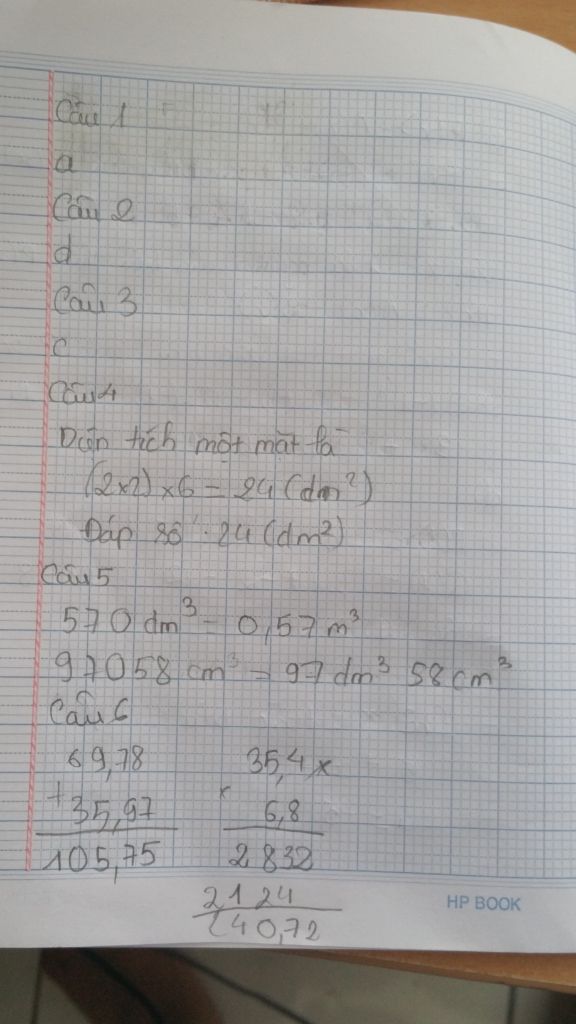 Câu 1
a
Câu 2
d
Câu 3
c
Câu 4
Diện tích một mặt là
(2x2) x 6 = 24 (dm²)
Đáp số : 24 (dm²)
Câu 5
570 dm³ = 0,57 m³
97058 cm³ = 97 dm³ 58 cm³
Câu 6
69,78 35,4 x
+ 35,97 x 6,8
105,75 2832
2124
240,72
HP BOOK